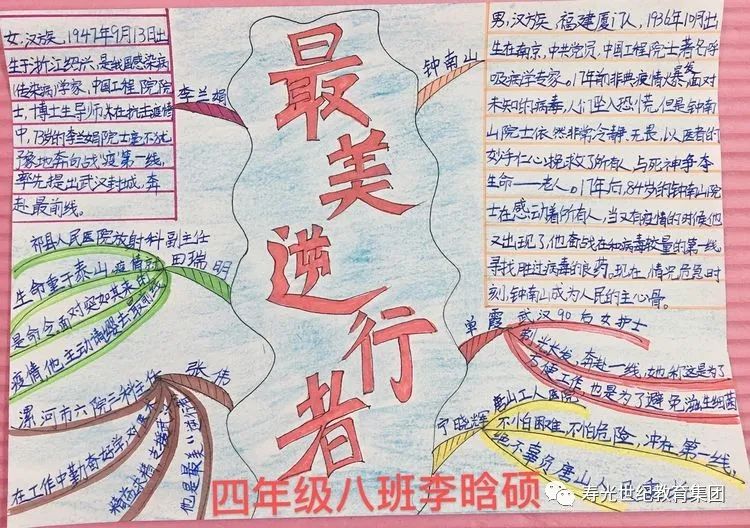 女，汉族，1947年9月13日出
生于浙江绍兴，是我国感染病
(传染病)学家，中国工程院院
士，博士生导师，本在抗击疫情
中，73岁的李兰娟院士毫不犹
豫地奔向战"疫"第一线，
率先提出武汉封城，奔
赴最前线。
李兰娟
最美逆行者
钟南山
男，汉族，福建厦门人，1936年10月出
生在南京，中共党员，中国工程院士著名呼
吸病学专家。17年前非典疫情爆发面对
未知的病毒，人们坠入恐慌。但是钟南
山院士依然非常冷静、无畏，以医者的
妙手仁心挽救了所有人，与死神争夺
生命——老人。17年后，84岁的钟南山院
士在感动着所有人，当又有疫情的时候他
又出现了他奋战在和病毒较量的第一线
寻找胜过病毒的良药。现在情况危急时
刻，钟南山成为人民的主心骨。
祁县人民医院放射科副主任
田瑞明
生命重于泰山 疫情就
是命令。面对突如其来的
疫情，他主动请缨去最
张伟
漯河市六院二科主任
在工作中勤奋好学
他是最美
单霞 武汉90后女护士
剃光长发，奔赴一线，她说这是为了
方便工作 也是为了避免滋生细菌
宁晓辉
唐山工人医院
不怕困难，不怕危险，冲在第一线，
绝不辜负唐山人
四年级八班李晗硕
寿光世纪教育集团